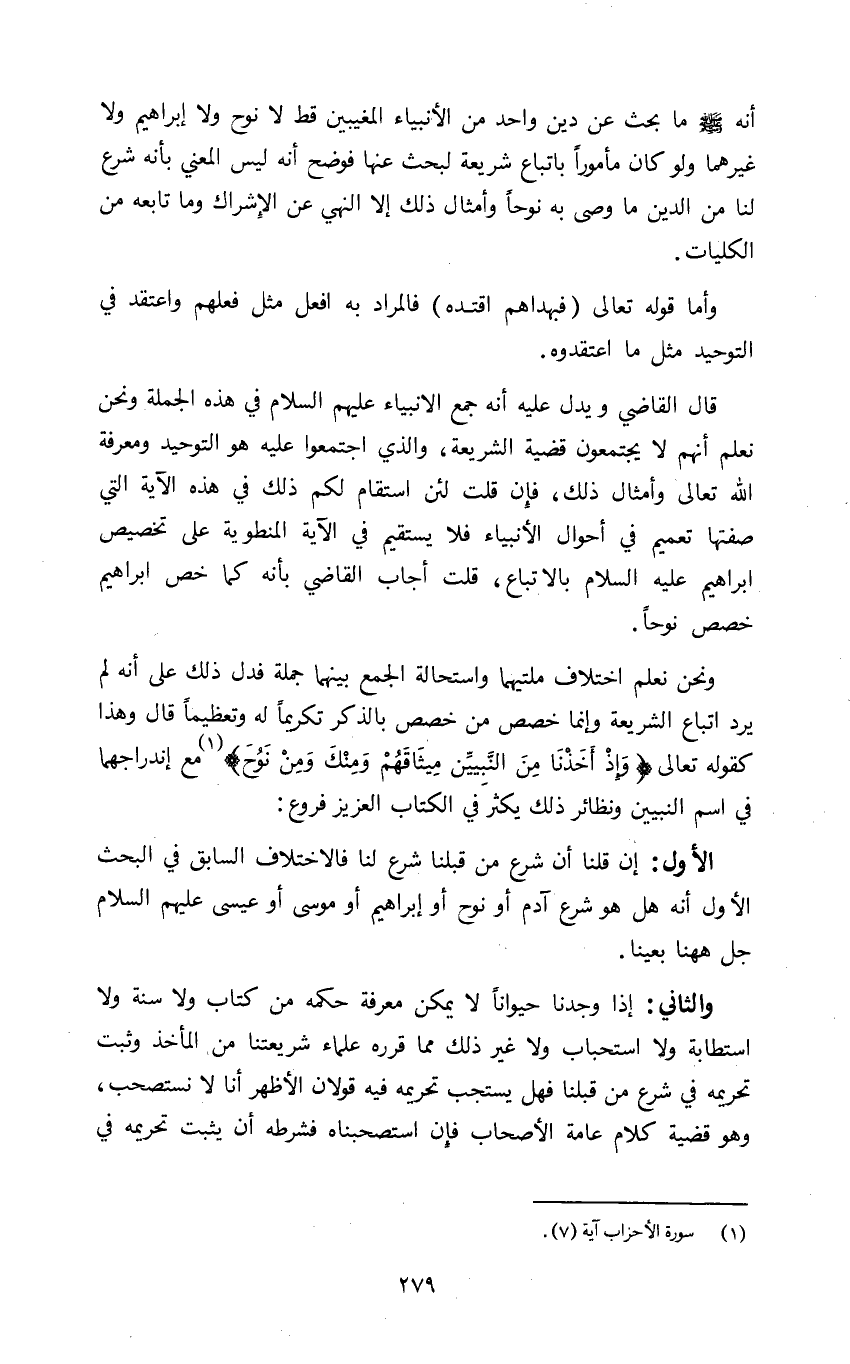 أنه ﷺ ما بحث عن دين واحد من الأنبياء المغيبين قط لا نوح ولا إبراهيم ولا
غيرهما ولو كان مأموراً باتباع شريعة لبحث عنها فوضح أنه ليس المعني بأنه شرع
لنا من الدين ما وصى به نوحاً وأمثال ذلك إلا النهي عن الإشراك وما تابعه من
الكليات .
وأما قوله تعالى ( فبهداهم اقتده ) فالمراد به افعل مثل فعلهم واعتقد في
التوحيد مثل ما اعتقدوه .
قال القاضي ويدل عليه أنه جمع الانبياء عليهم السلام في هذه الجملة ونحن
نعلم أنهم لا يجتمعون قضية الشريعة ، والذي اجتمعوا عليه هو التوحيد ومعرفة
الله تعالى وأمثال ذلك ، فإن قلت لئن استقام لكم ذلك في هذه الآية التي
صفتها تعميم في أحوال الأنبياء فلا يستقيم في الآية المنطوية على تخصيص
ابراهيم عليه السلام بالاتباع ، قلت أجاب القاضي بأنه كما خص ابراهيم
خصص نوحاً .
ونحن نعلم اختلاف ملتيهما واستحالة الجمع بينهما جملة فدل ذلك على أنه لم
يرد اتباع الشريعة وإنما خصص من خصص بالذكر تكريماً له وتعظيماً قال وهذا
كقوله تعالى ﴿ وَإِذْ أَخَذْنَا مِنَ النَّبِيِّن مِيثَاقَهُمْ وَمِنْكَ وَمِنْ نَوُحَ ﴾ (١) مع إندراجهما
في اسم النبيين ونظائر ذلك يكثر في الكتاب العزيز فروع :
الأول : إن قلنا أن شرع من قبلنا شرع لنا فالاختلاف السابق في البحث
الأول أنه هل هو شرع آدم أو نوح أو إبراهيم أو موسى أو عيسى عليهم السلام
جل ههنا بعينا .
والثاني : إذا وجدنا حيواناً لا يمكن معرفة حكمه من كتاب ولا سنة ولا
استطابة ولا استحباب ولا غير ذلك مما قرره علماء شريعتنا من المأخذ وثبت
تحريمه في شرع من قبلنا فهل يستجب تحريمه فيه قولان الأظهر أنا لا نستصحب ،
وهو قضية كلام عامة الأصحاب فإن استصحبناه فشرطه أن يثبت تحريمه في
(١) سورة الأحزاب آية (٧) .
٢٧٩